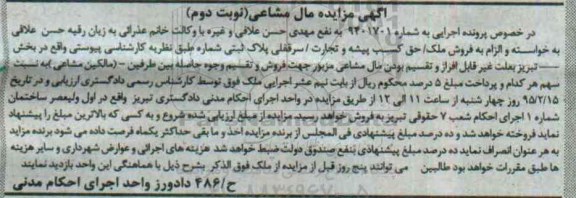 آگهی مزایده مال مشاعی(نوبت دوم)
در خصوص پرونده اجرایی به شماره ۹۴۰۱۷۰۱ به نفع مهدی حسن علافی و غیره با وکالت خانم عذرائی به زیان رقیه حسن علافی
به خواسته و الزام به فروش ملک/حق کسب پیشه و تجارت / سرقفلی پلاک ثبتی شماره طبق نظریه کارشناسی پیوستی واقع در بخش
تبریز بعلت غیر قابل افراز و تقسیم بودن مال مشاعی مزبور جهت فروش و تقسیم وجوه حاصله بین طرفین – (مالکین مشاعی )به نسبت
سهم هر کدام و پرداخت مبلغ ۵ درصد محکوم ریال از بابت نیم عشر اجرایی ملک فوق توسط کارشناس رسمی دادگستری ارزیابی و در تاریخ
۹۵/۲/۱۵ روز چهار شنبه از ساعت ۱۱ الی ۱۲ از طریق مزایده در واحد اجرای احکام مدنی دادگستری تبریز واقع در اول ولیعصر ساختمان
شماره ۱ اجرای احکام شعب ۷ حقوقی تبریز به فروش خواهد رسید. مزایده از مبلغ ارزیابی شده شروع و به کسی که بالاترین مبلغ را پیشنهاد
نماید فروخته خواهد شد و ده درصد مبلغ پیشنهادی فی المجلس از برنده مزایده اخذ و ما بقی حداکثر یکماه فرصت داده می شود برنده مزایده
به هر عنوان انصراف نماید ده درصد مبلغ پیشنهادی بنفع صندوق دولت ضبط خواهد شد هزینه های اجرائی و عوارض شهرداری و سایر هزینه
ها طبق مقررات خواهد بود طالبین می توانند پنج روز قبل از مزایده از ملک فوق الذکر بشرح ذیل با هماهنگی این واحد بازدید نمایند
ح/۴۸۶ دادورز واحد اجرای احکام مدنی